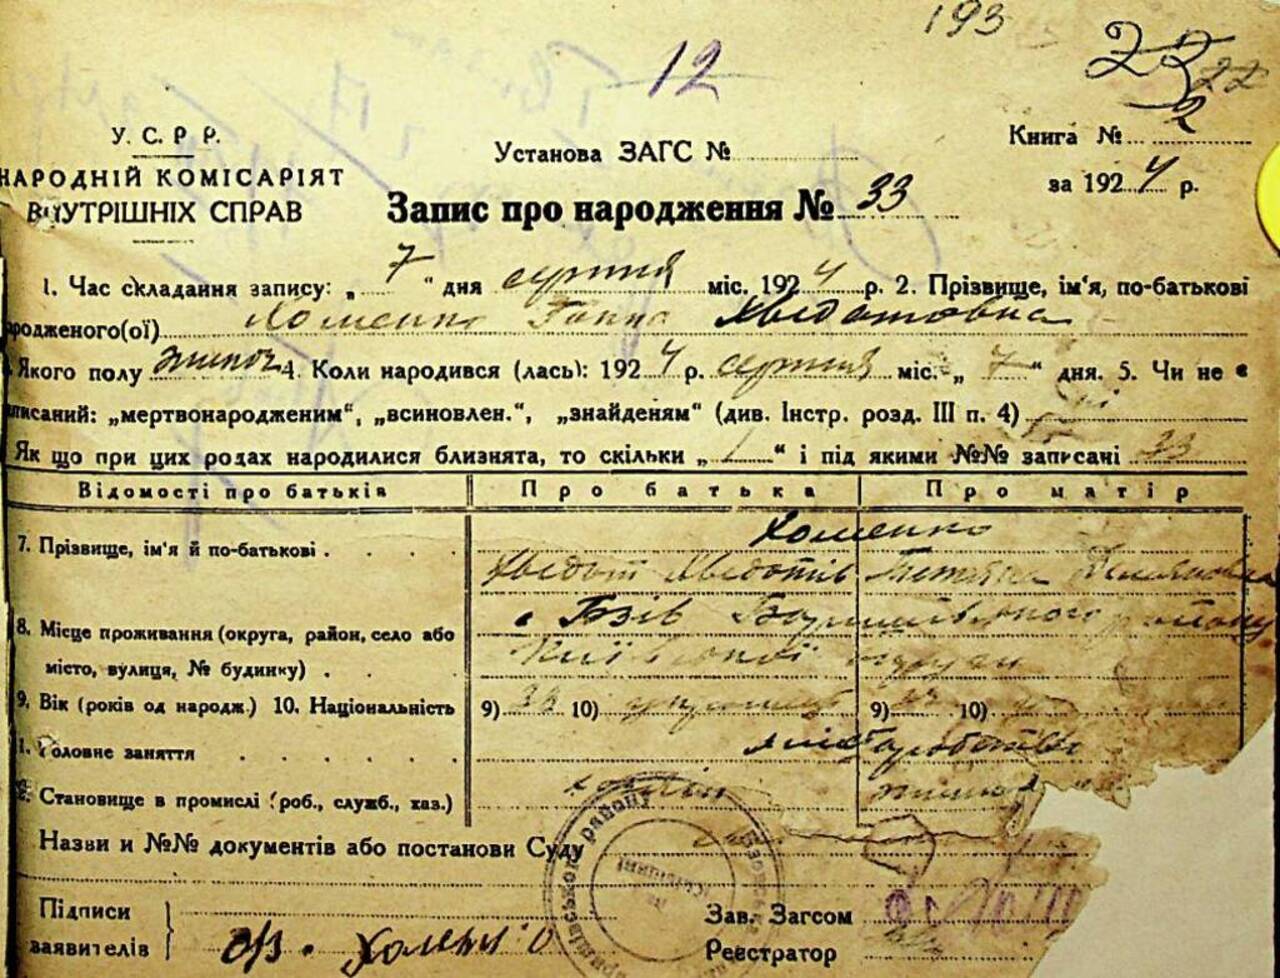 193
12
23
22
У. С. Р. Р.
НАРОДНІЙ КОМІСАРІЯТ
ВНУТРІШНІХ СПРАВ
Установа ЗАГС №
Книга № 2
за 1924 р.
Запис про народження № 33
1. Час складання запису: „ 7 “ дня серпня міс. 1924 р. 2. Прізвище, ім'я, по-батькові
родженого(ої) Хоменко Ганна Хведотовна
Якого полу жіноч 4. Коли народився (лась): 1924 р. серпня міс. „ 7 “ дня. 5. Чи не є
писаний: „мертвонародженим“, „всиновлен.“, „знайденям“ (див. Інстр. розд. III п. 4) ні
Як що при цих родах народилися близнята, то скільки „ 1 “ і під якими №№ записані 33
Відомості про батьків Про батька Про матір
7. Прізвище, ім'я й по-батькові . . . . Хоменко
Хведот Хведотів Тетяна
8. Місце проживання (округа, район, село або
місто, вулиця, № будинку) . .
с Бзів Баришівського району
Київської округи
9. Вік (років од народж.) 10. Національність 9) 10) 9) 10)
1. Головне заняття . . . . . . хліборобство
Становище в промислі (роб., служб., хаз.) хазяїн
Назви и №№ документів або постанови Суду
Підписи
заявителів
Хоменко
Зав. Загсом
Реєстратор